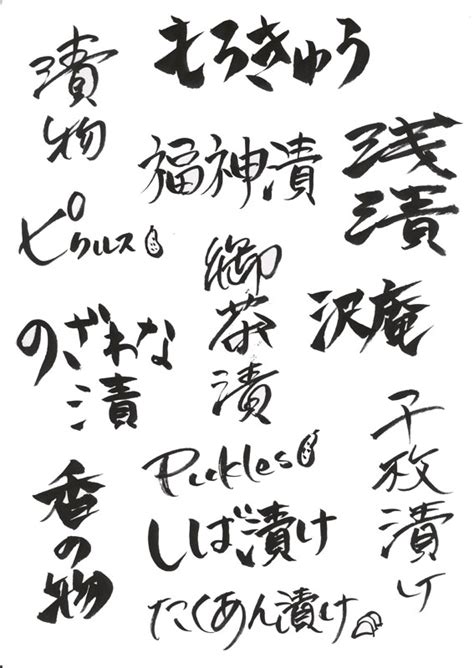 漬物
もろきゅう
浅漬
福神漬
ピクルス
御茶漬
沢庵
のざわな
漬
千枚漬け
Pickles
香の物
しば漬け
たくあん漬け